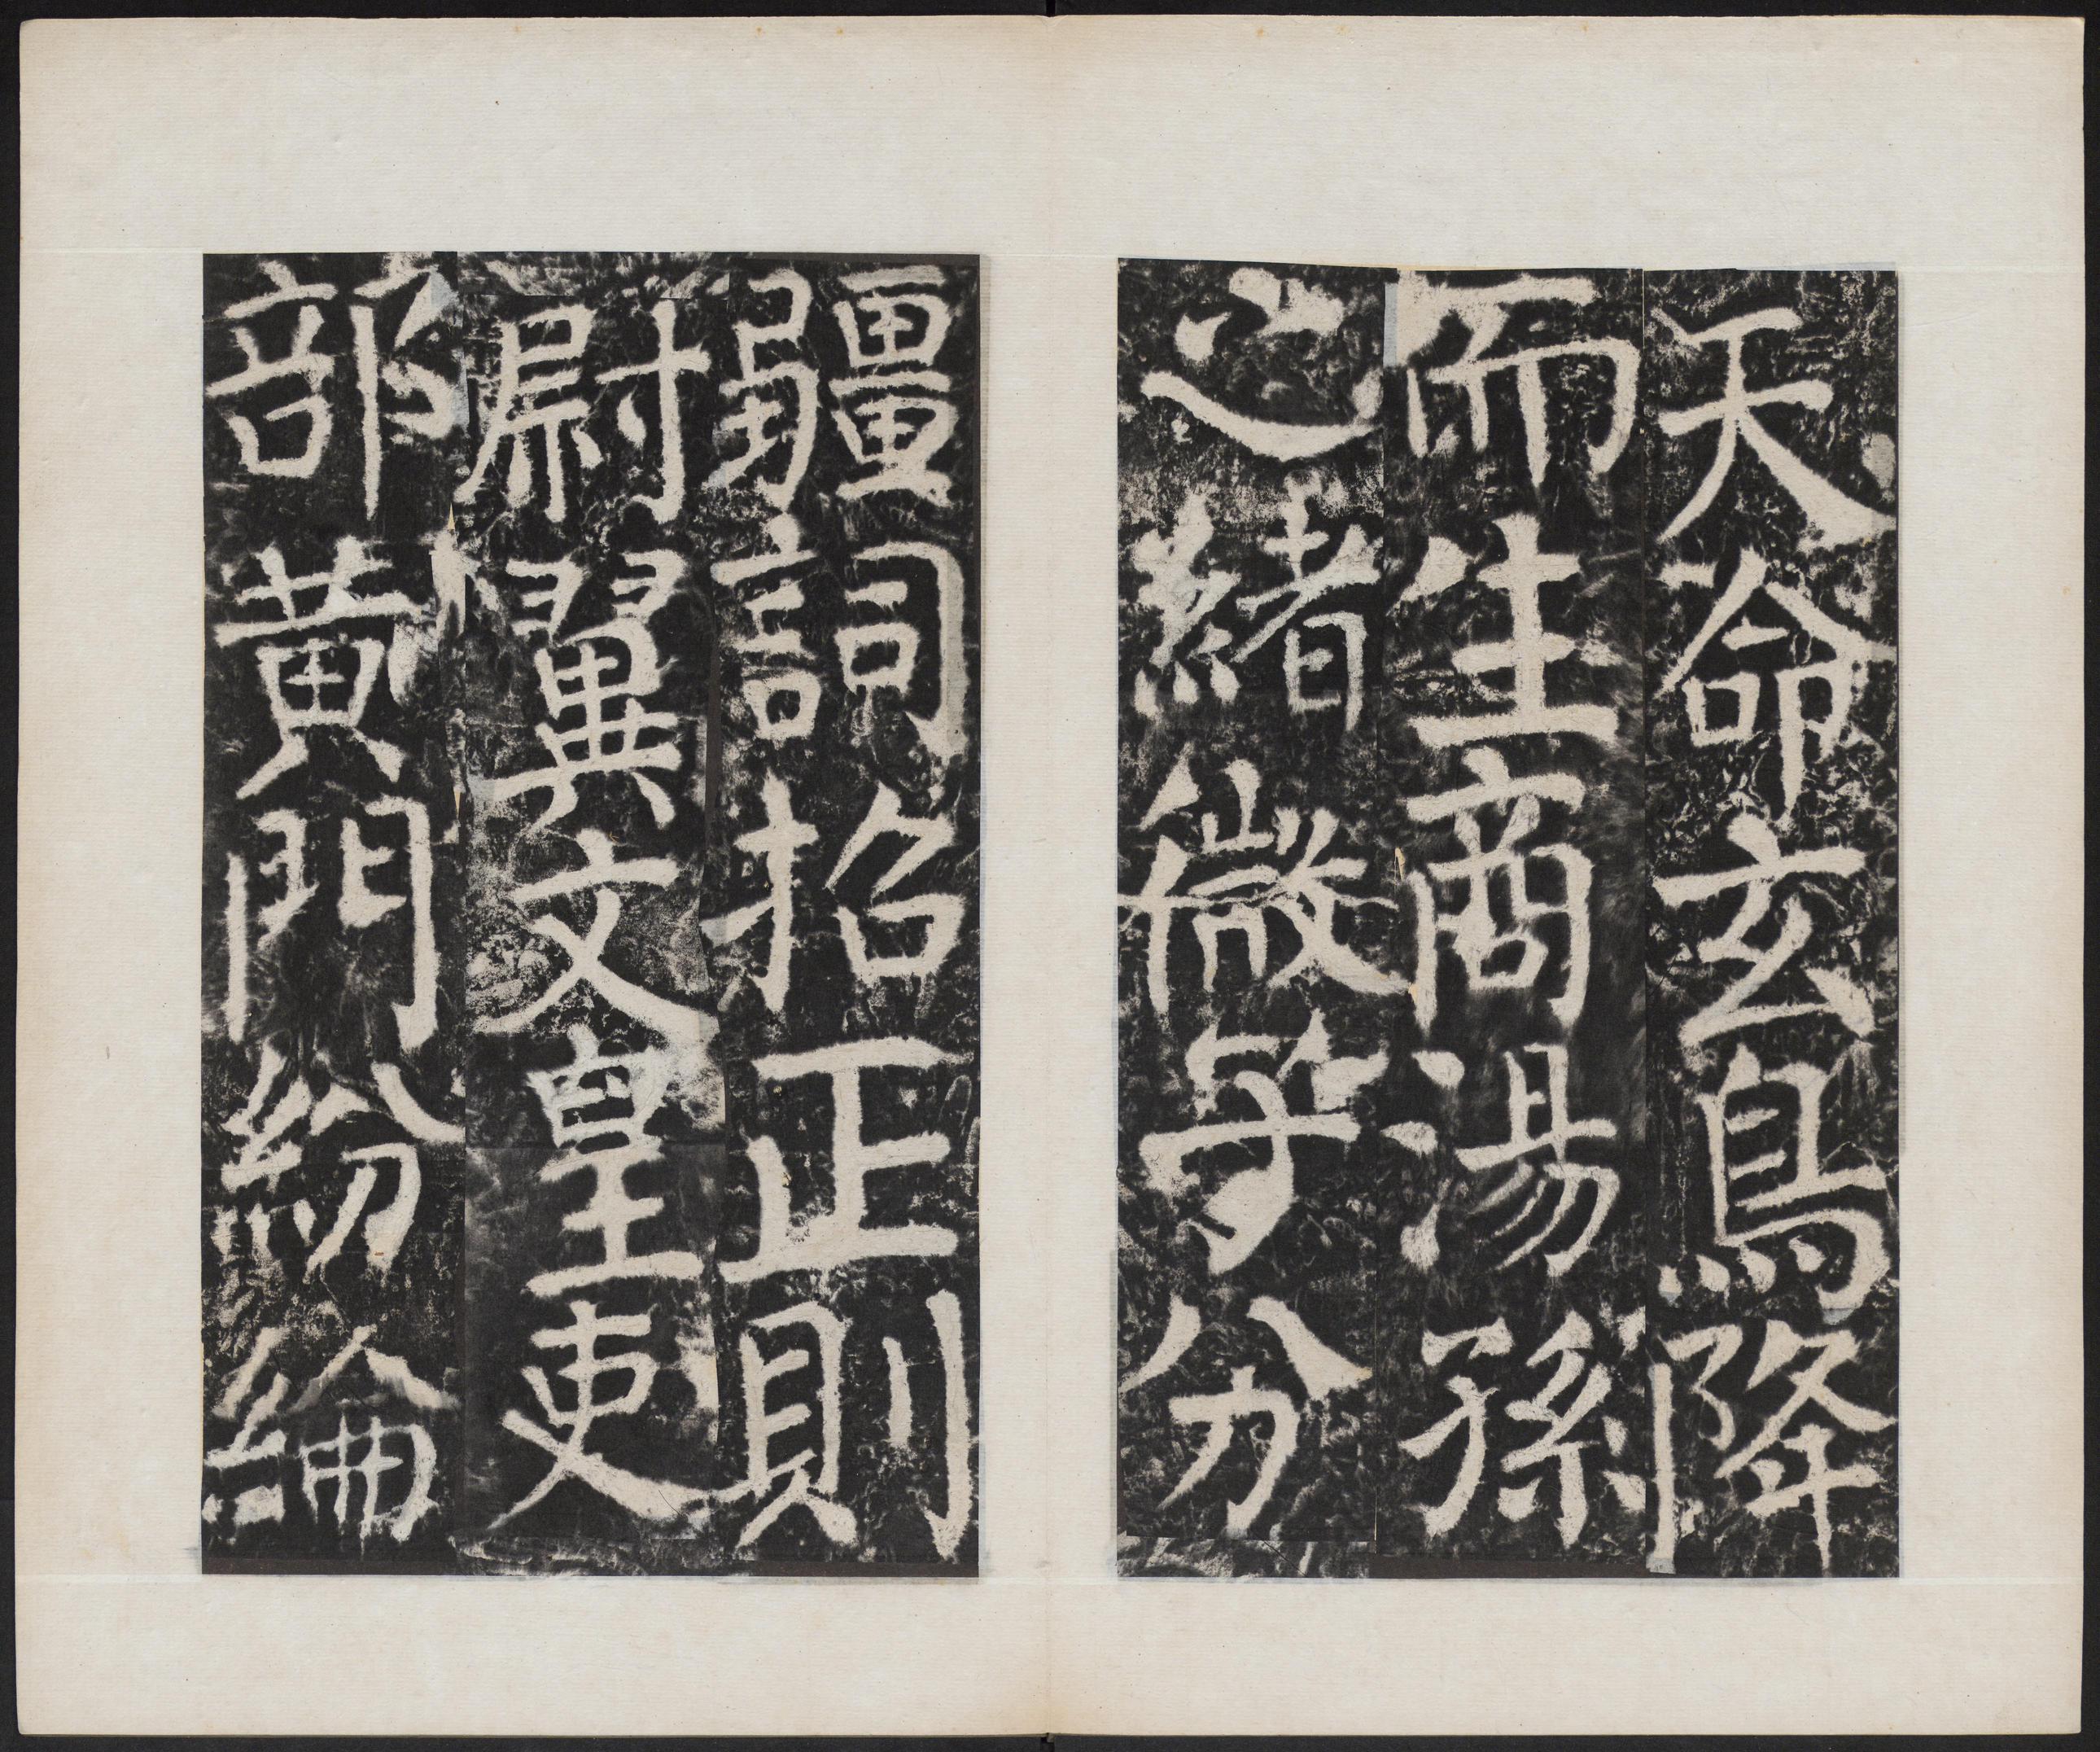 天命玄鳥降
而生商湯孫
之緒微子分
疆詞招正則
尉翼文皇吏
部黃門紛綸